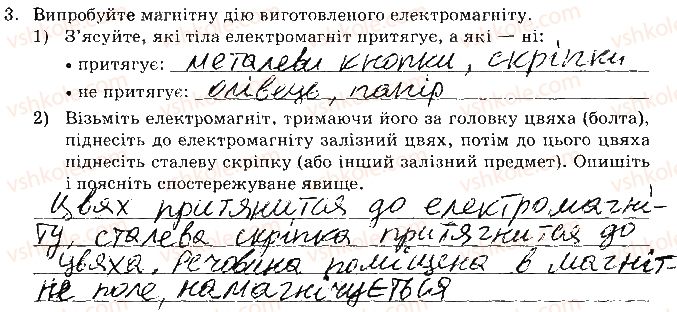 3. Випробуйте магнітну дію виготовленого електромагніту.
1) З'ясуйте, які тіла електромагніт притягує, а які — ні:
• притягує: металеви кнопки, скріпки
• не притягує: олівець, папір
2) Візьміть електромагніт, тримаючи його за головку цвяха (болта),
піднесіть до електромагніту залізний цвях, потім до цього цвяха
піднесіть сталеву скріпку (або інший залізний предмет). Опишіть
і поясніть спостережуване явище.
Цвях притянится до електромагні-
ту, сталева скріпка притягнится до
цвяха. Речовина поміщена в магніт-
не поле, намагнічується